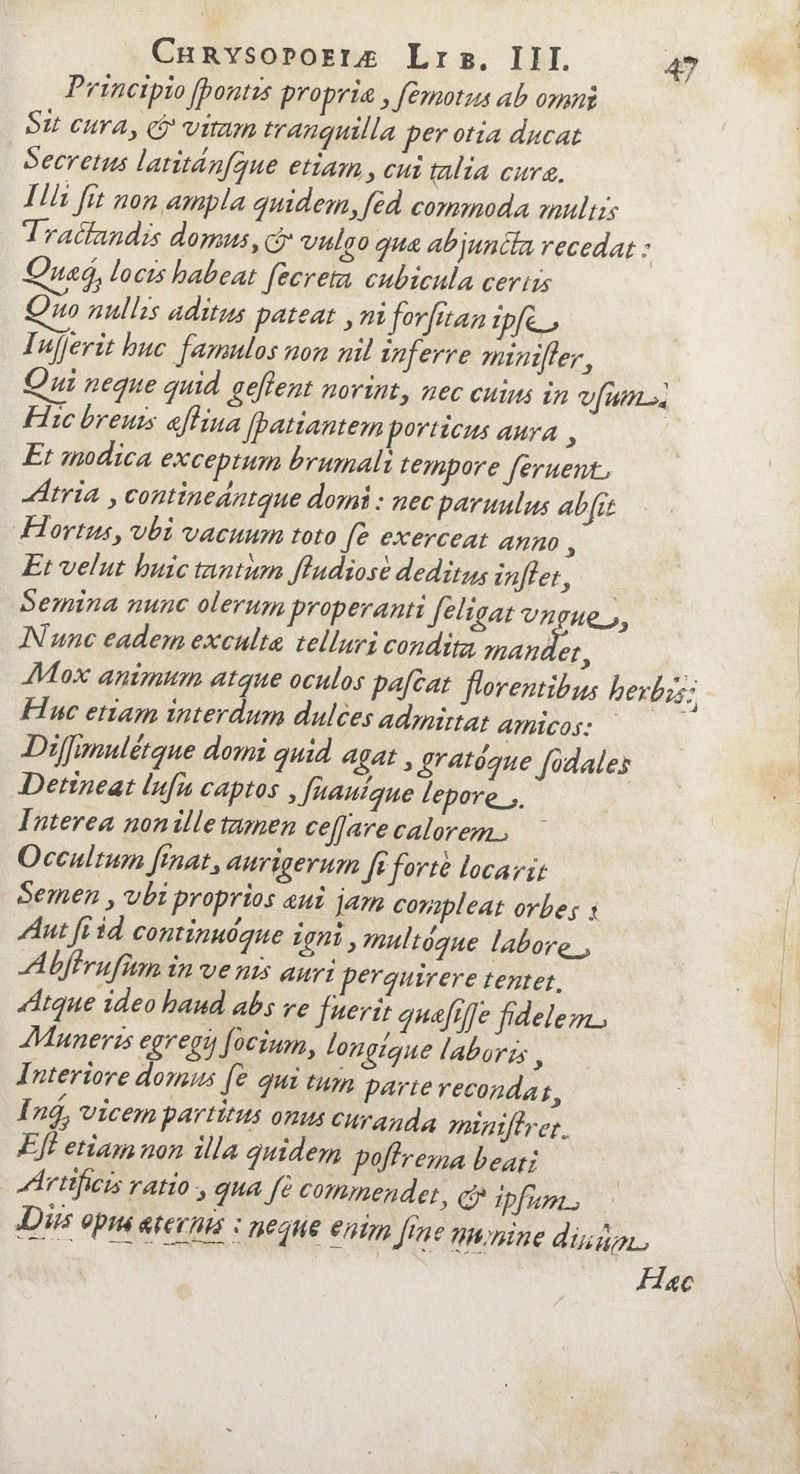 CHRYSOPOEIÆ LIB. III. 47
Principio ſpontis propriæ, ſemotus ab omni
Sit cura, & vitam tranquilla per otia ducat
Secretus latitánſque etiam, cui talia curæ.
Illi ſit non ampla quidem, ſed commoda multis
Tractandis domus, & vulgo quæ abjuncta recedat:
Quæq; locis habeat ſecreta cubicula certis
Quo nullis aditus pateat, ni forſitan ipſe
Iuſſerit huc famulos non nil inferre miniſter,
Qui neque quid geſtent norint, nec cuius in vſum.
Hic breuis æſtiua ſpatiantem porticus aura,
Et modica exceptum brumali tempore ſeruent
Atria, contineántque domi: nec paruulus abſit
Hortus, vbi vacuum toto ſe exerceat anno,
Et velut huic tantùm ſtudiosè deditus inſtet,
Semina nunc olerum properanti ſeligat vngue,
Nunc eadem excultæ telluri condita mandet,
Mox animum atque oculos paſcat florentibus herbis:
Huc etiam interdum dulces admittat amicos:
Diſſimulétque domi quid agat, gratóque ſodales
Detineat luſu captos, ſuauíque lepore.
Interea non ille tamen ceſſare calorem
Occultum ſinat, aurigerum ſi fortè locarit
Semen, vbi proprios æui jam compleat orbes:
Aut ſi id continuóque igni, multóque labore
Abſtruſum in venis auri perquirere tentet.
Atque ideo haud abs re fuerit quæſiſſe fidelem
Muneris egregij ſocium, longíque laboris,
Interiore domus ſe qui tum parte recondat,
Inq́; vicem partitus onus curanda miniſtret.
Eſt etiam non illa quidem poſtrema beati
Artificis ratio, qua ſè commendet, & ipſum
Diis opus æternis: neque enim ſine numine diuûm
Hæc